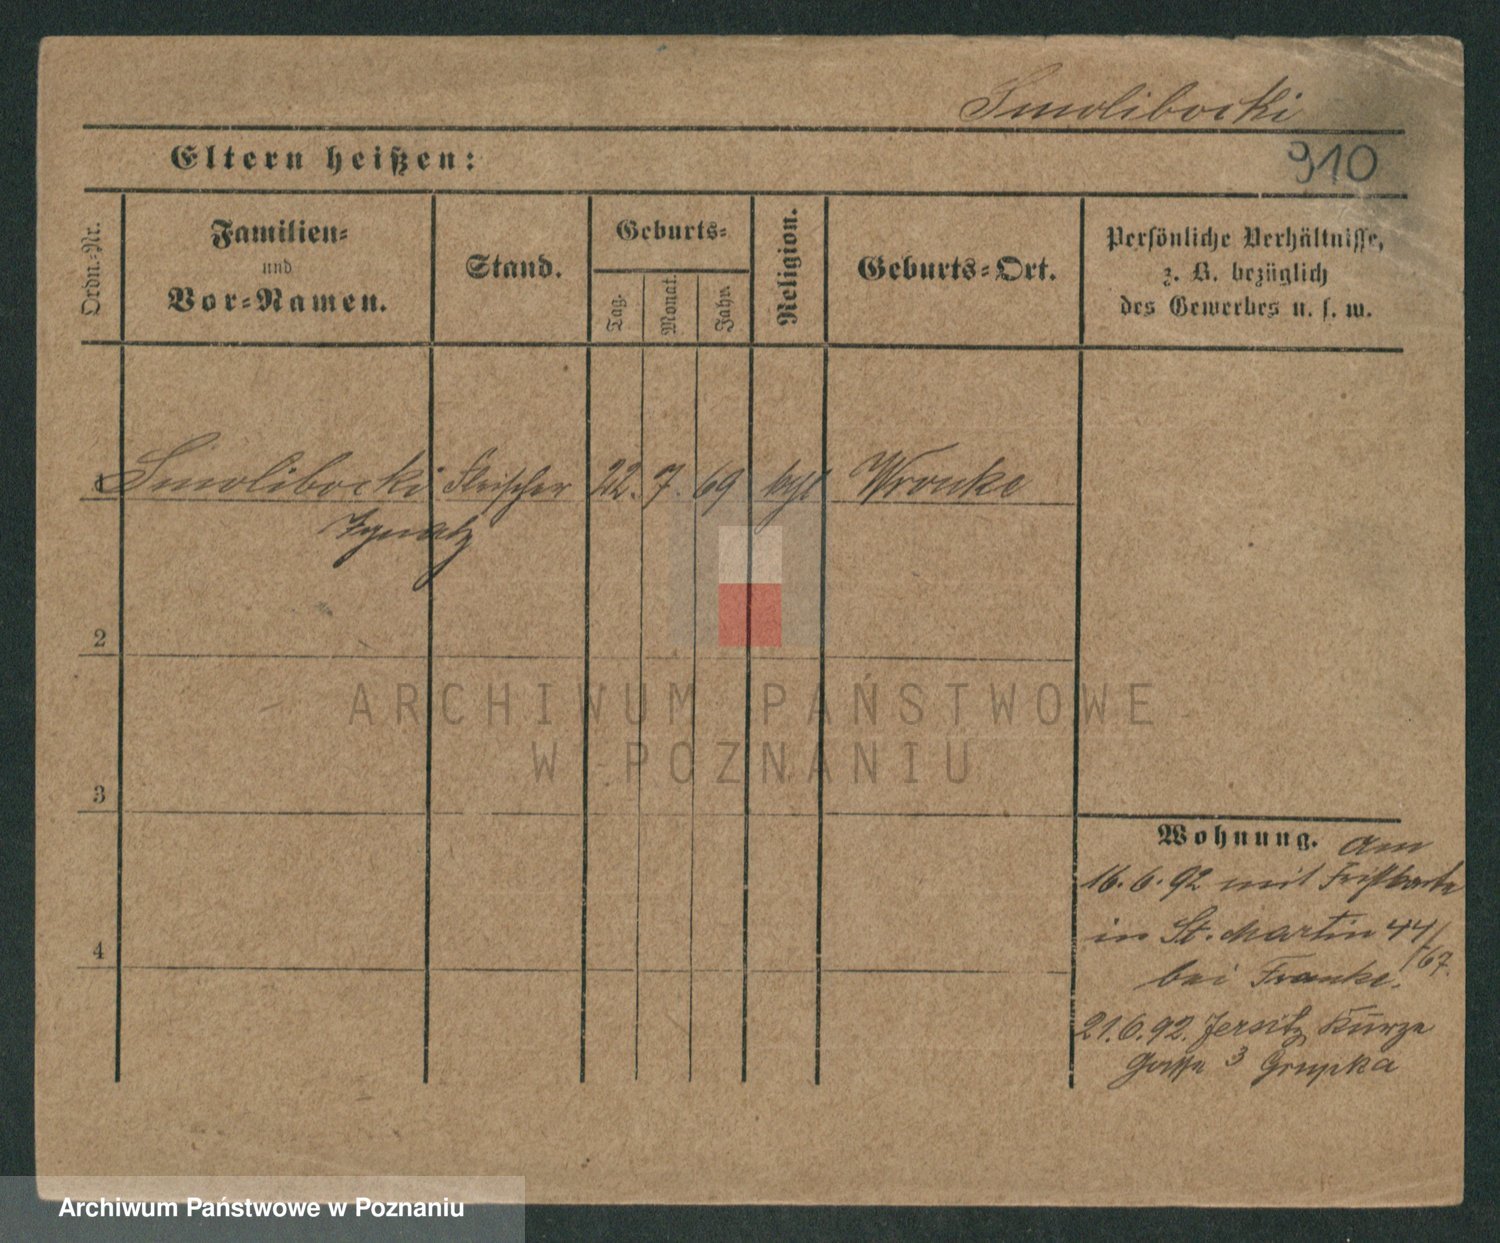 Smolibocki
910
Eltern heißen:
Ordn.-Nr.
Familien-
und
Vor-Namen.
Stand.
Geburts-
Tag.
Monat.
Jahr.
Religion.
Geburts-Ort.
Persönliche Verhältnisse,
z. B. bezüglich
des Gewerbes u. s. w.
1 Smolibocki Fleischer 22. 7. 69 kthl Wronke
Ignatz
2
ARCHIWUM PAŃSTWOWE
W POZNANIU
3
4
Wohnung. am
16. 6. 92 mit Fristkarte
in St. Martin 44/67.
bei Franke.
21. 6. 92. Jersitz Kurze
Gasse 3 Grupka
Archiwum Państwowe w Poznaniu